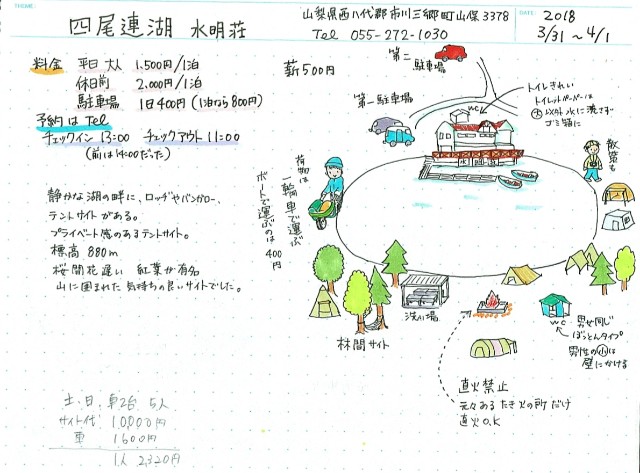 THEME:
四尾連湖 水明荘
山梨県西八代郡市川三郷町山保3378
Tel 055-272-1030
DATE:
2018
3/31～4/1
料金 平日 大人 1,500円/1泊
休日前 2,000円/1泊
駐車場 1日400円(1泊なら800円)
予約は Tel
チェックイン 13:00 チェックアウト 11:00
(前は14:00だった)
薪500円
第二駐車場
第一駐車場
WC
トイレきれい
トイレットペーパーは
大以外水に流さず
ゴミ箱に
散策も
荷物は
一輪車で運ぶ
ボートで運ぶのは
400円
静かな湖の畔に、ロッヂやバンガロー、
テントサイトがある。
プライベート感のあるテントサイト。
標高 880m
桜開花遅い 紅葉が有名
山に囲まれた気持ちの良いサイトでした。
林間サイト
洗い場
WC
男女同じ
ぼっとんタイプ
男性の小は
壁にかける
直火禁止
元々あるたき火の所だけ
直火O.K
土、日 車2台 5人
サイト代 10,000円
車 1600円
1人 2,320円